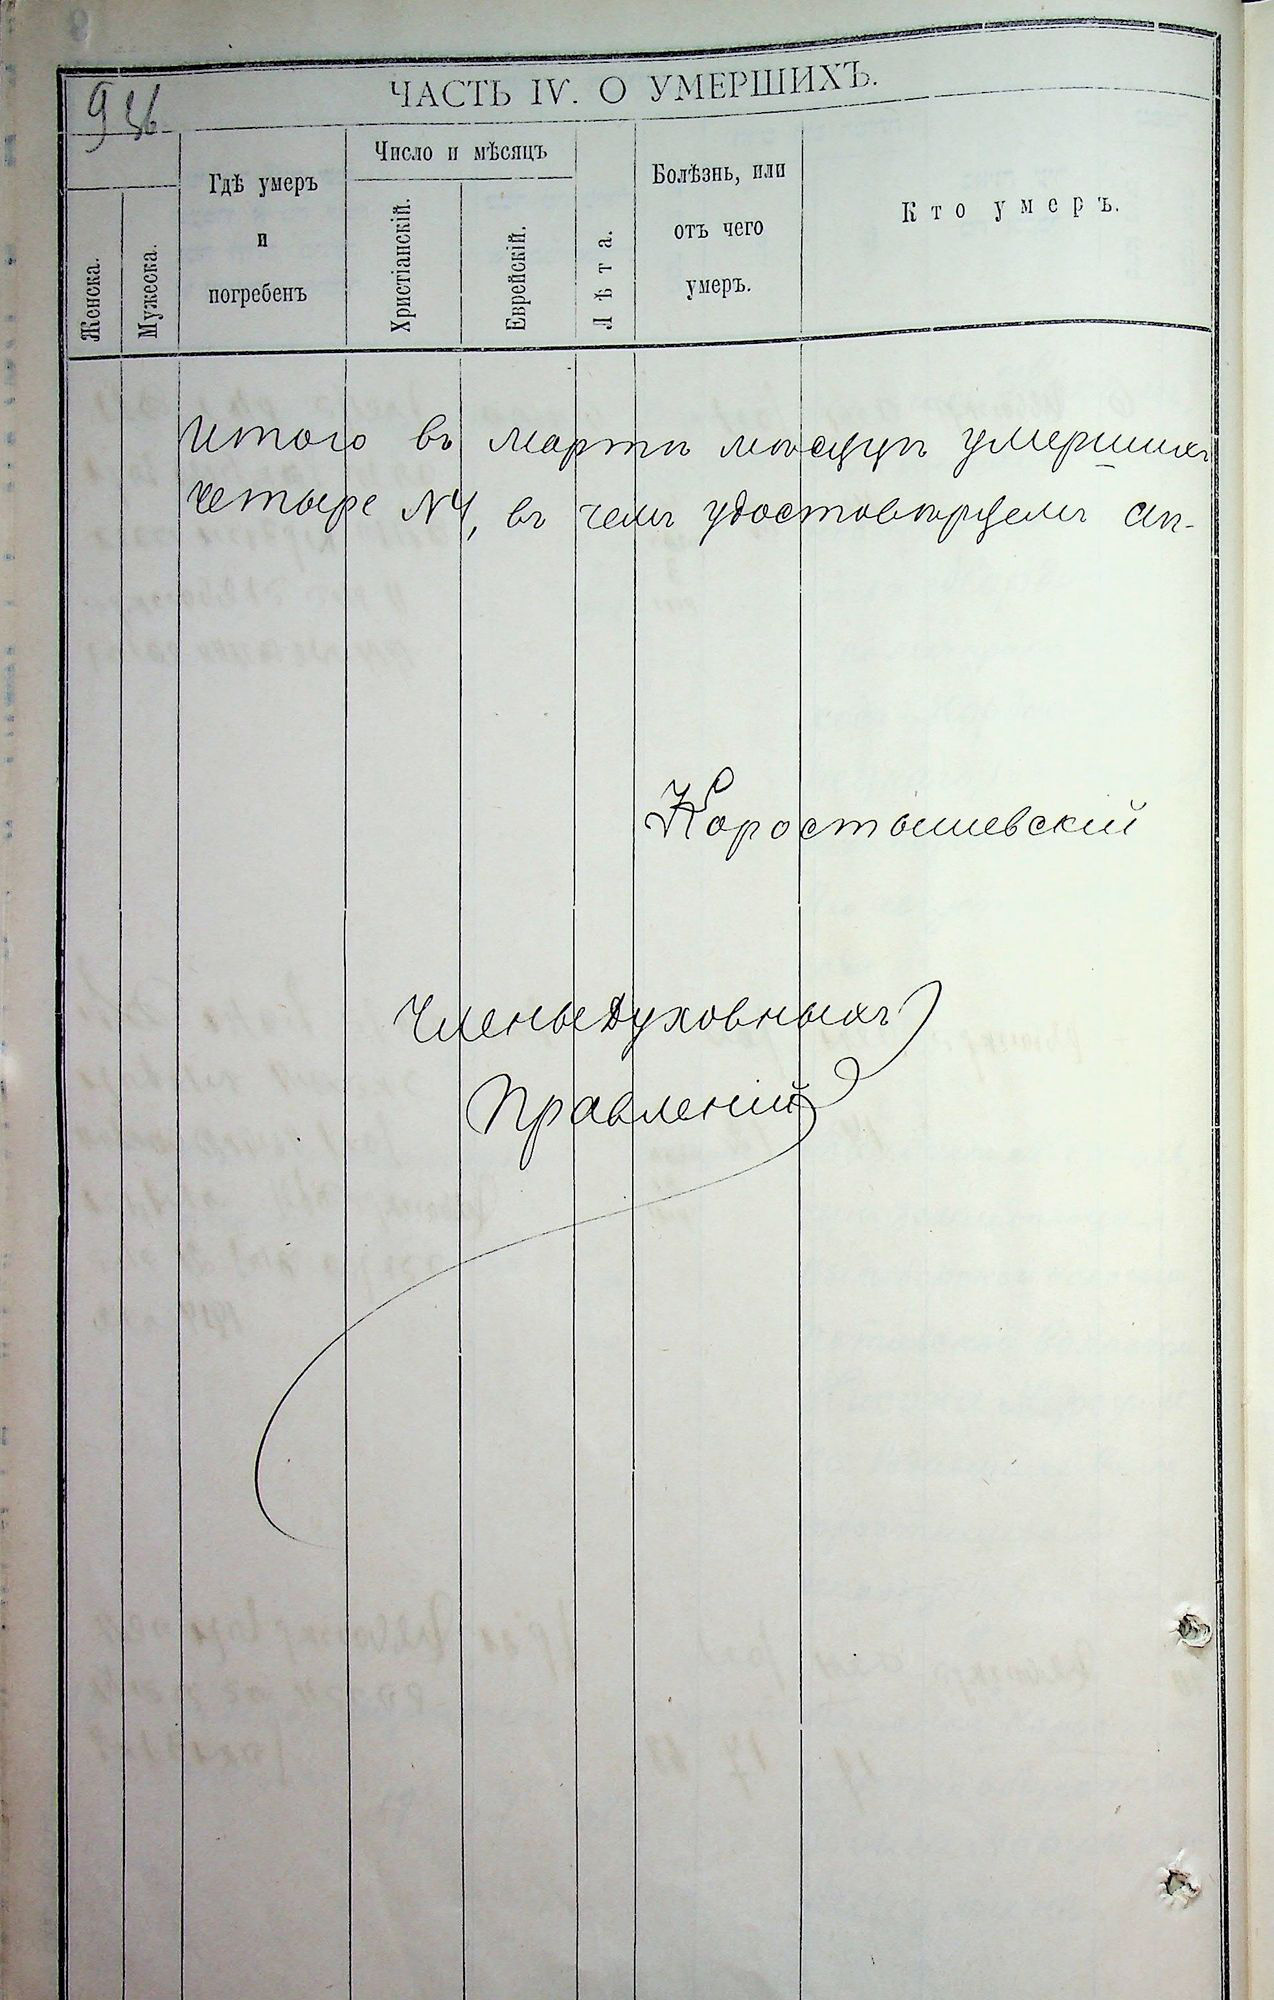 9 зв.
ЧАСТЬ IV. О УМЕРШИХЪ.
Женска.
Мужеска.
Гдѣ умеръ
и
погребенъ
Число и мѣсяцъ
Христіанскій.
Еврейскій.
Лѣта.
Болѣзнь, или
отъ чего
умеръ.
Кто умеръ.
Итого въ мартѣ мѣсяцѣ умершихъ
четыре №4, въ чемъ удостовѣряемъ
Коростышевскій
Члены Духовныхъ
Правленій